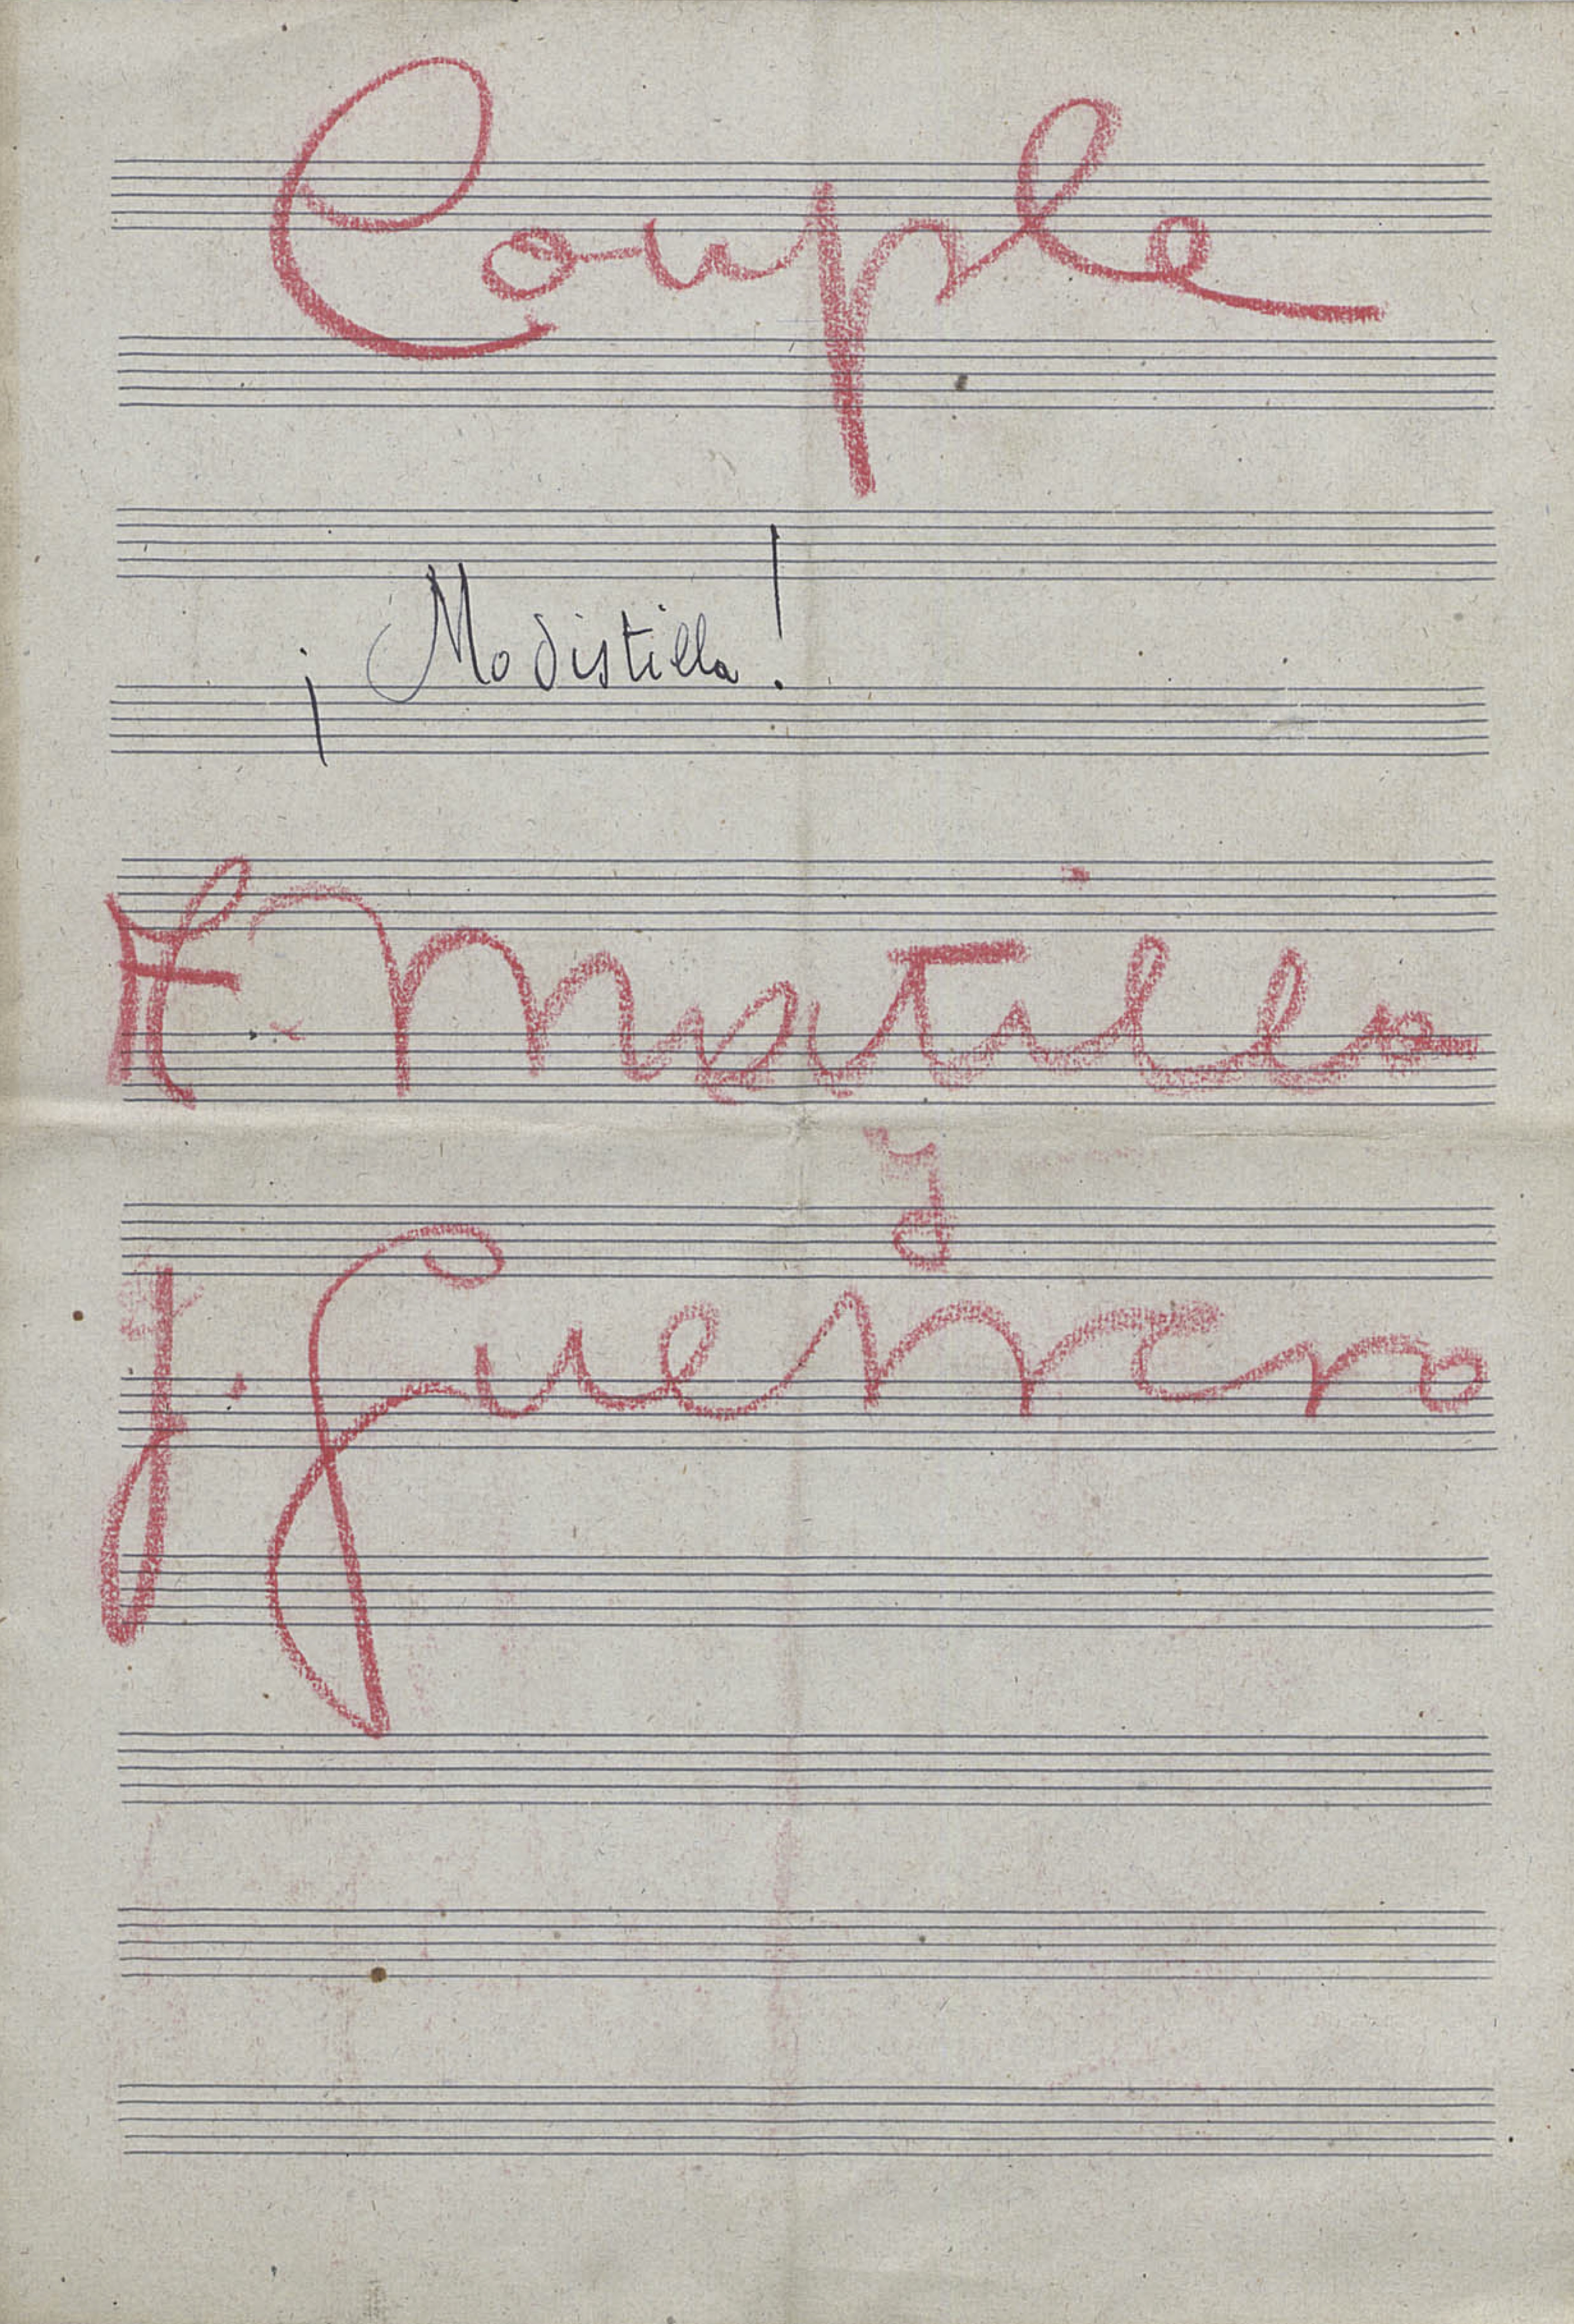 Couple
¡Modistilla!
F. Matilla
y
J. Guerrero